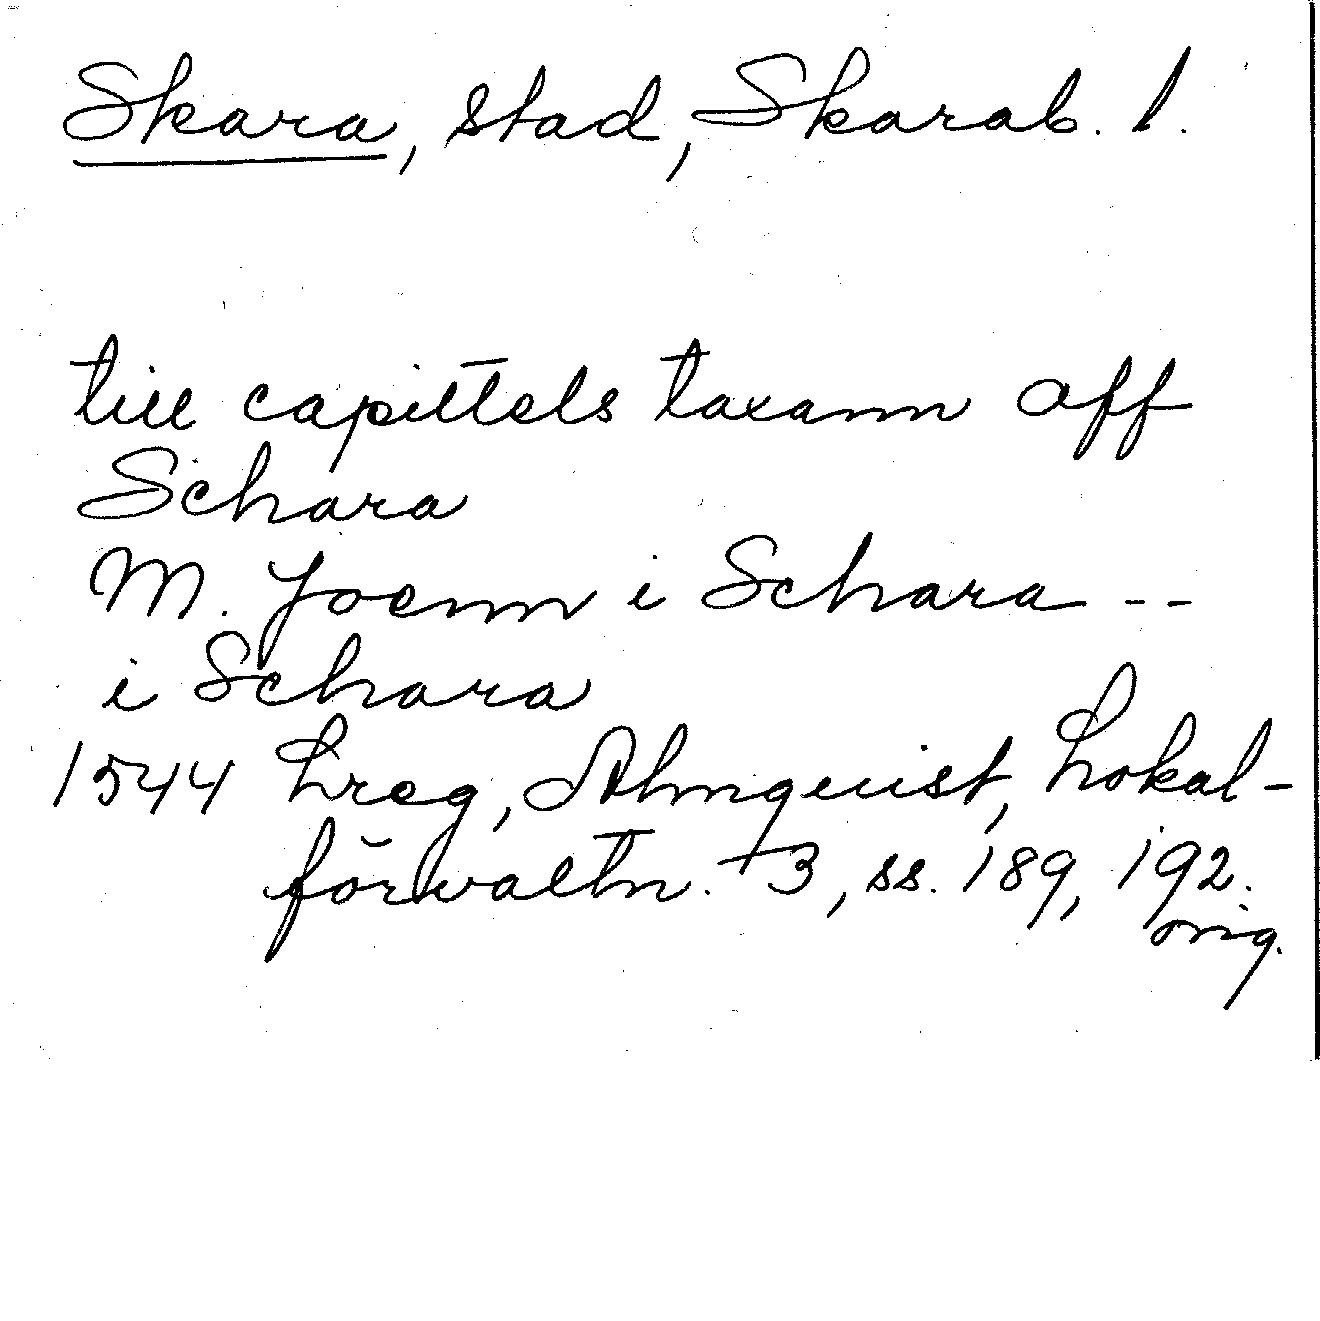 Skara, stad, Skarab. l.
till capittels taxann aff
Schara
M. Joenn i Schara --
i Schara
1544 Lreg, Almquist, Lokal-
förvaltn. 3, ss. 189, 192.
orig.